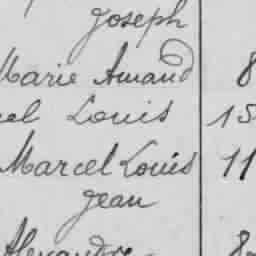 Joseph
Marie Amand 8
el Louis 15
Marcel Louis 11
Jean
Alexandre 8